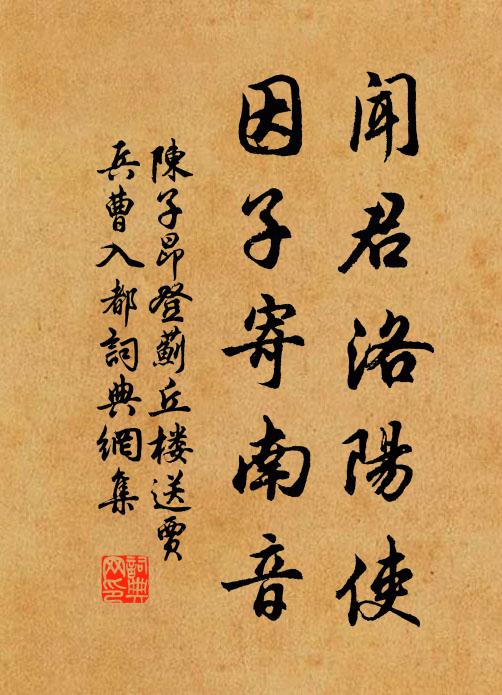 聞君洛陽使
因子寄南音
陳子昂登薊丘樓送賈
兵曹入都詞典網集
詞典網印